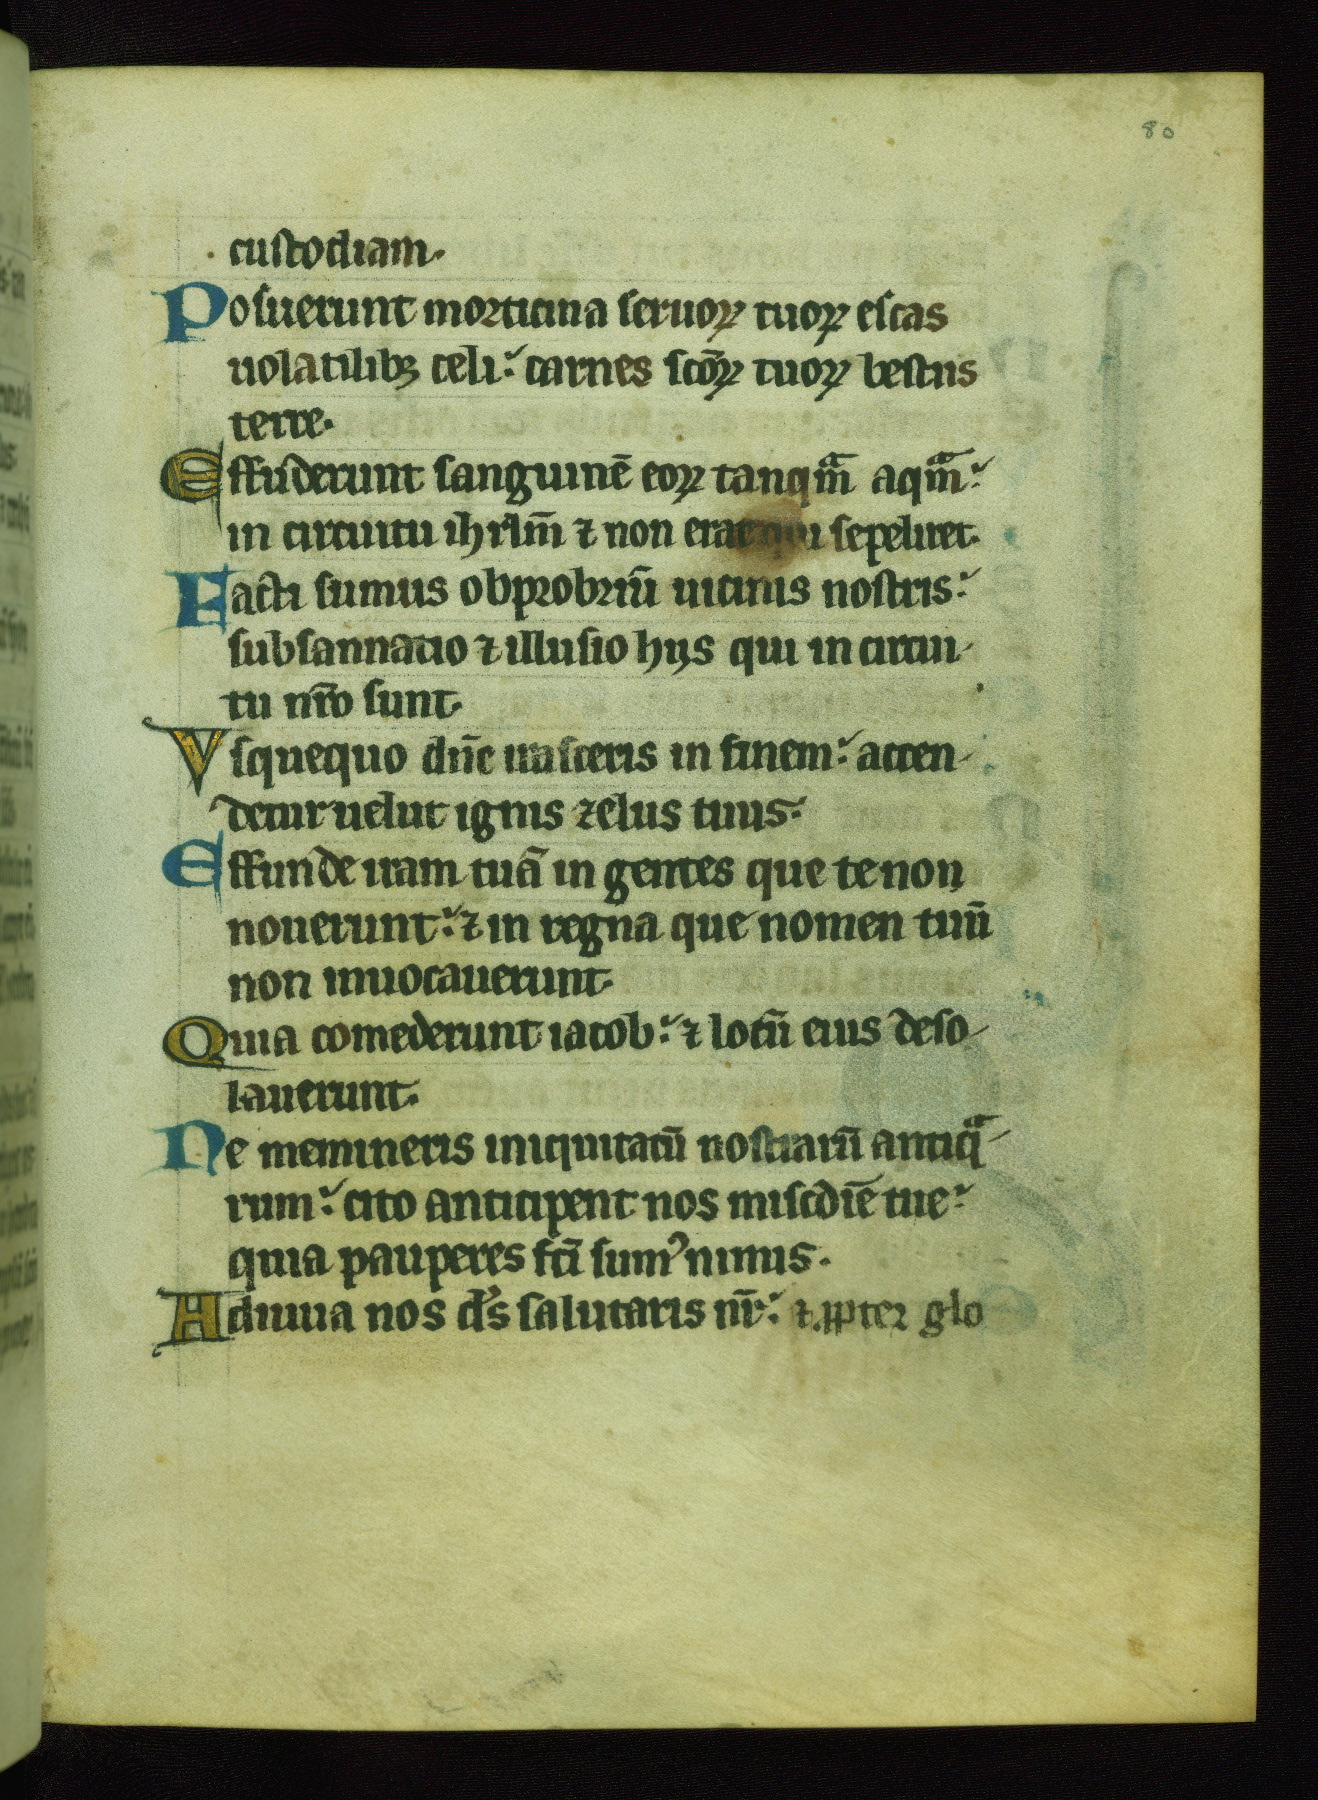 80
custodiam.
Posuerunt morticina seruoꝝ tuoꝝ escas
uolatilibꝫ celi: carnes sc̄oꝝ tuoꝝ bestiis
terre.
Effuderunt sanguinē eoꝝ tanqᵃm̄ aqᵃm̄:
in circuitu ihrl̄m ⁊ non erat qui sepeliret.
Facti sumus obprobriū uicinis nostris:
subsannatio ⁊ illusio hijs qui in circui-
tu nr̄o sunt.
Vsquequo dn̄e irasceris in finem: accen-
detur uelut ignis zelus tuus.
Effunde iram tuā in gentes que te non
nouerunt: ⁊ in regna que nomen tuū
non inuocauerunt.
Quia comederunt iacob: ⁊ locū eius deso-
lauerunt.
Ne memineris iniquitatū nostrarū antiqᵃ-
rum: cito anticipent nos miscdīe tue:
quia pauperes fc̄i sumꝰ nimis.
Adiuua nos ds̄ salutaris nr̄: ⁊ ꝓpter glo